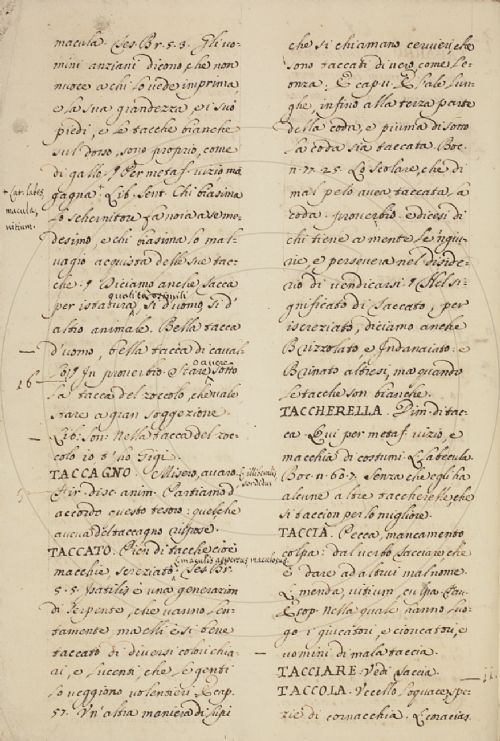 macula. Tes. Br. 5. 3. Gli uo-
mini anziani dicono, che non
nuoce a chi lo vede imprima
e la sua grandezza, e i suoi
piedi, e le tacche bianche
sul dosso, sono proprio, come
di galle. ¶ Per metaf. vizio ma
gagna + Lib. Sent. Chi biasima
+ Lat. labes,
macula,
vitium.
lo schernitore fa noia a se me-
desimo e chi biasima lo mal-
vagio acquista delle sue tac-
che. ¶ Diciamo anche tacca
per istatura, qualità si d'uomo, si d'
altro animale. Bella tacca
d'uomo, bella tacca di caval-
lo. ¶ In proverbio. Stare, o avere sotto
16
la tacca del zoccolo, che vale
stare a gran soggezione.
Lib. Son. Nella tacca del zoc-
colo io t'ho Gigi.
TACCAGNO. Misero, avaro.
Fir. disc. anim. Cartiamo d'
accordo questo tesoro: quelche
aveva del taccagno rispose.
TACCATO. Pien di tacche, cioè
macchie screziato. Tes. Br.
5. 5. Isatilis è una generazion
di serpente, che vanno len-
tamente ma elli è sì bene
taccato di diversi colori chia-
ri, e lucenti, che le genti
lo veggiono volentieri. E cap.
57. Un'altra maniera di lupi
che si chiamano cervieri, che
sono taccati di nero, come le-
onza. E capu. E l'ale lun-
ghe, infino alla terza parte
della coda, e piuma di sotto
la coda sia taccata. Boc.
n. 77. 25. Lo scolare, che di
mal pelo avea taccata la
coda. proverbio, e dicesi di
chi tiene a mente le 'ngiu-
rie, e persevera nel deside-
rio di vendicarsi. ¶ Nel si-
gnificato di Taccato, per
iscreziato, diciamo anche
Brizzolato, e Indanaiato: e
Brinato altresì, ma quando
le tacche son bianche.
TACCHERELLA. Dim. di tac-
ca. Qui per metaf. vizio, e
macchia di costumi. Labecula.
Boc. n. 60. 7. Senza che egli ha
alcune altre taccherelle, che
si taccion per lo migliore.
TACCIA. Pecca, mancamento
colpa: dal verbo Tacciare, che
è dare ad altrui mal nome.
Menda, vitium, culpa. Fav.
Esop. Nella quale hanno luo-
go i giucatori, e cioncatori, e
uomini di mala taccia.
TACCIARE. Vedi Taccia.
TACCOLA. Uccello loquace, spe-
zie di cornacchia.